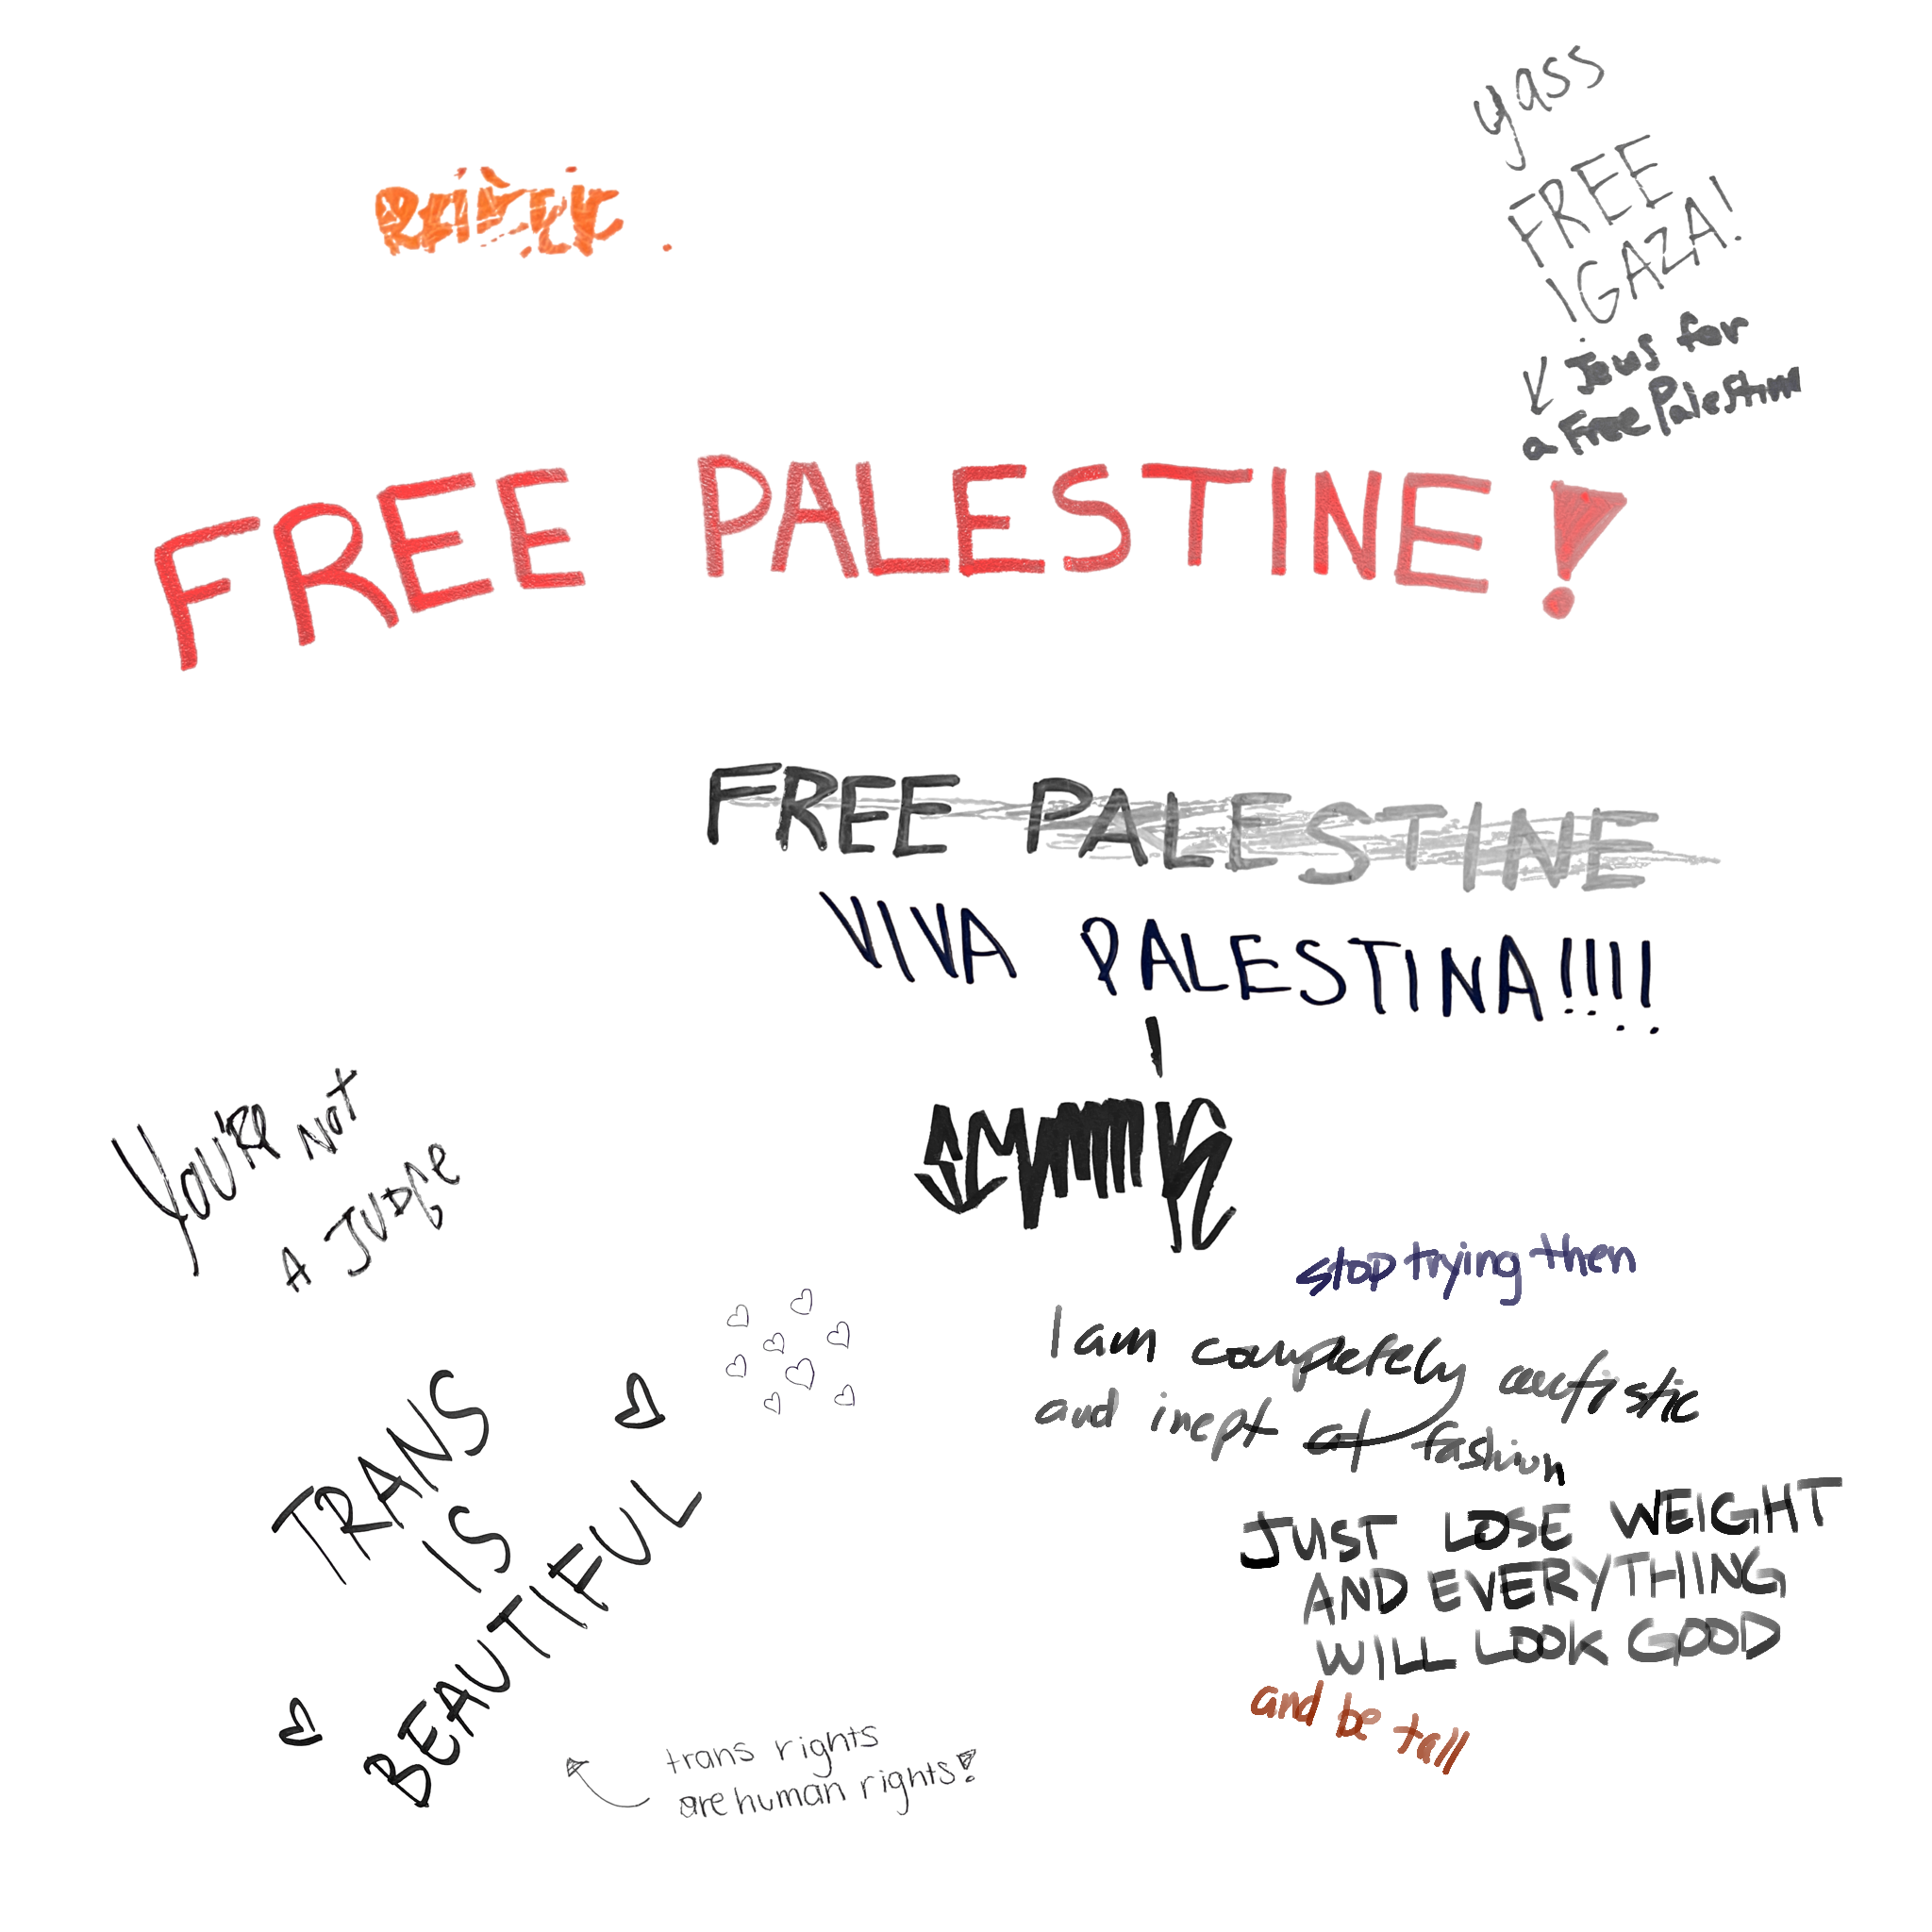 yass
FREE
GAZA!
Jews for
a Free Palestine
FREE PALESTINE!
FREE PALESTINE
VIVA PALESTINA!!!!
YOU'RE NOT
A JUDGE
stop trying then
I am completely autistic
and inept at fashion
JUST LOSE WEIGHT
AND EVERYTHING
WILL LOOK GOOD
and be tall
TRANS
IS
BEAUTIFUL
trans rights
are human rights!